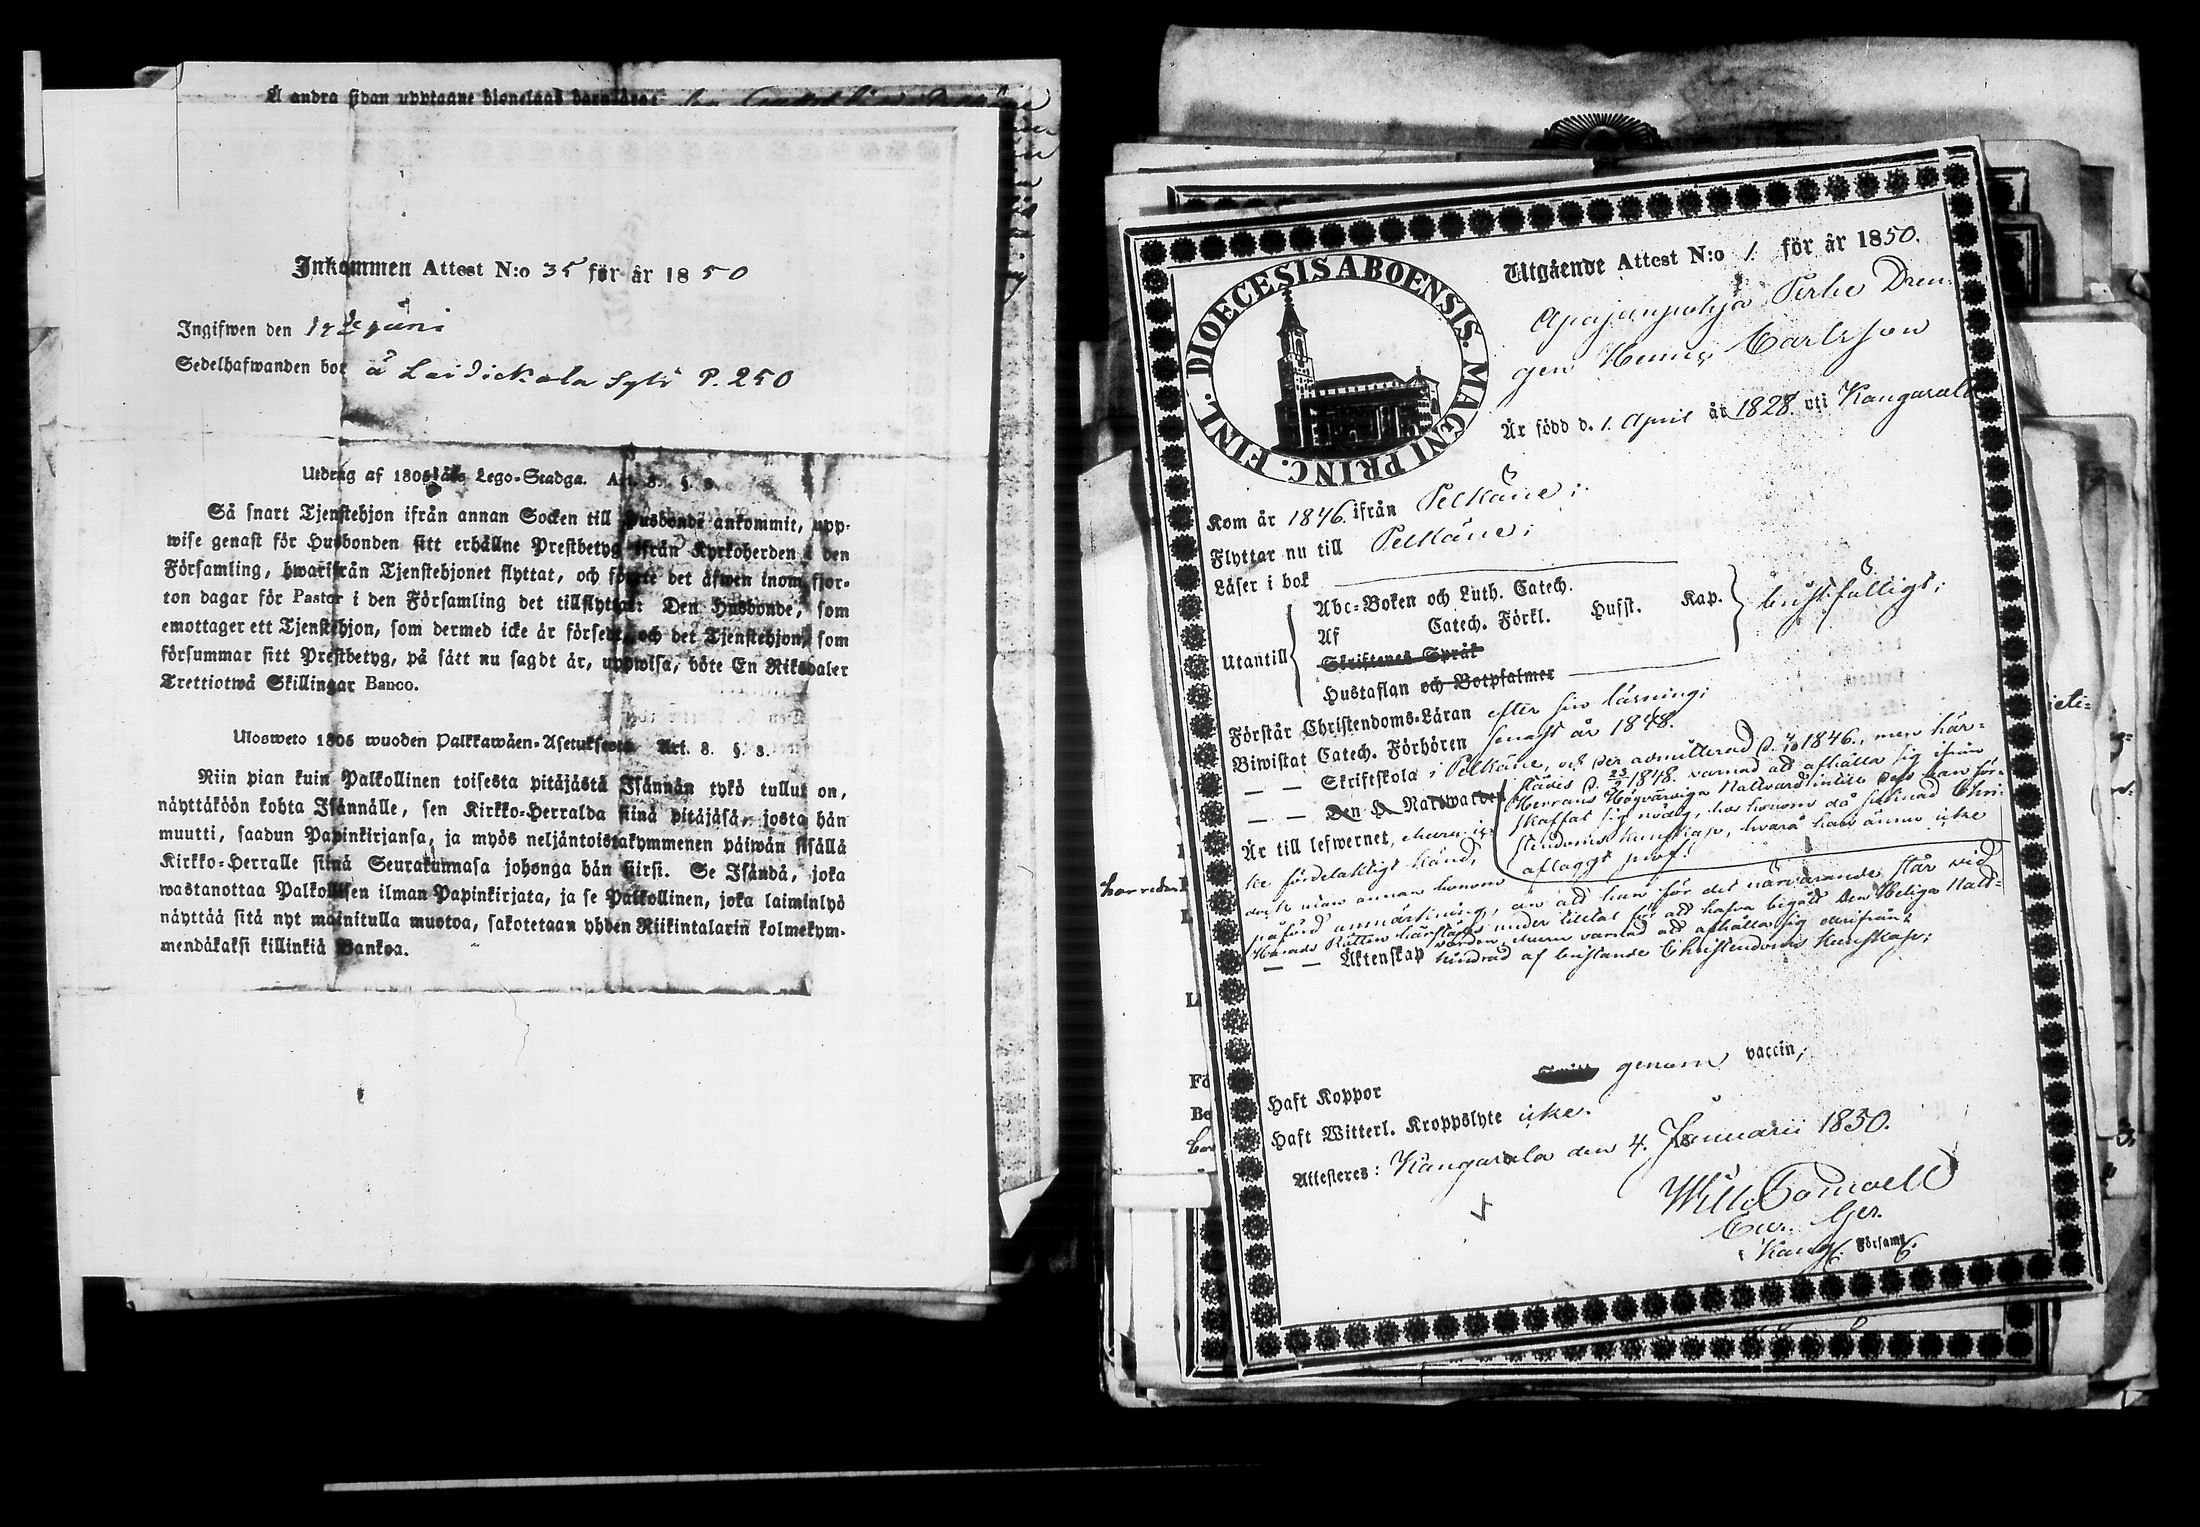 Å andra sidan upptagne
Inkommen Attest N:o 35 för år 1850
Ingifwen den juni
Sedelhafwanden bor å Laidickala P. 250
Utdrag af 1805 års Lego-Stadga. Art. 8. §.
Så snart Tjenstehjon ifrån annan Socken till Husbonde ankommit, upp-
wise genast för Husbonden sitt erhållne Prestbetyg ifrån Kyrkoherden i den
Församling, hwarifrån Tjenstehjonet flyttat, och förete det äfwen inom fjor-
ton dagar för Pastor i den Församling det tillflyttat: Den Husbonde, som
emottager ett Tjenstehjon, som dermed icke är försedt, och det Tjenstehjon, som
försummar sitt Prestbetyg, på sätt nu sagdt är, uppwisa, böte En Riksdaler
Trettiotwå Skillingar Banco.
Ulosweto 1805 wuoden Palkkawäen-Asetuksesta Art. 8. §. 8.
Niin pian kuin Palkollinen toisesta pitäjästä Isännän tykö tullut on,
näyttäköön kohta Isännälle, sen Kirkko-Herralda siinä pitäjäsä, josta hän
muutti, saadun Papinkirjansa, ja myös neljäntoistakymmenen päiwän sisällä
Kirkko-Herralle siinä Seurakunnasa johonga hän siirsi. Se Isändä, joka
wastanottaa Palkollisen ilman Papinkirjata, ja se Palkollinen, joka laiminlyö
näyttää sitä nyt mainitulla muotoa, sakotetaan yhden Riikintalarin kolmekym-
mendäkaksi killinkiä Bankoa.
DIOECESIS ABOENSIS. MAGNI PRINC. FINL.
Utgående Attest N:o 1 för år 1850.
Dren-
gen Carlsson
Är född d. 1. April år 1828. uti Kangasala
Kom år 1846. ifrån Pelkäne;
Flyttar nu till Pelkäne;
Läser i bok
Utantill
Abc-Boken och Luth. Catech.
Af Catech. Förkl. Husst. Kap.
bristfälligt;
Skriftenes Språk
Hustaflan och Botpsalmer
Förstår Christendoms-Läran efter sin läsning;
Biwistat Catech. Förhören senast år 1848.
— — Skriftskola i Pelkäne, och der admitterad 1846., men här-
städes d. 1848. varnad att afhålla sig ifrån
— — Den H. Nattwarden
Herrans Högvärdiga Nattvard intill dess han för-
skaffat sig nödig, hos honom då saknad Chri-
stendoms kunskap, hvarå han ännu icke
aflaggt prof!
Är till lefwernet, ehuru ic-
ke fördelaktigt känd,
dock utan annan honom
påförd anmärkning, än att han för det närvarande står vid
Härads Rätten härstädes under tilltal för att hafva begått den Heliga Natt-
varden, ehuru varnad att afhålla sig derifrån;
— — Äktenskap hindrad af bristande Christendoms kunskap;
Haft Koppor genom vaccin;
Haft Witterl. Kroppslyte icke.
Attesteras: Kangasala den 4. Januarii 1850.
Församl.